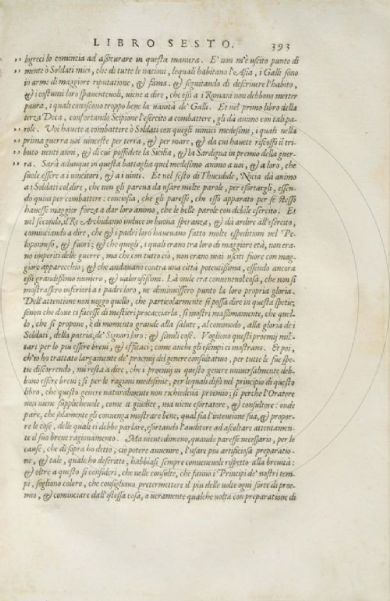 LIBRO SESTO. 393
greci lo comincia ad assicurare in questa maniera. E' non m'è uscito punto di
mente ò Soldati miei, che di tutte le nationi, lequali habitano l'Asia, i Galli sono
in arme di maggiore riputatione, & fama. & seguitando di descriuere l'habito,
& i costumi loro spauenteuoli, viene a dire, che essi a i Romani non debbono metter
paura, i quali conoscono troppo bene la uanità de' Galli. Et nel primo libro della
terza Deca, confortando Scipione l'esercito a combattere, gli dà animo con tali pa-
role. Voi hauete a combattere ò Soldati con quegli nimici medesimi, i quali nella
prima guerra voi uinceste per terra, & per mare, & da cui hauete riscosso il tri-
buto uenti anni, & di cui possedete la Sicilia, & la Sardegna in premio della guer-
ra. Sarà adunque in questa battaglia quel medesimo animo a uoi, & a loro, che
suole essere a i uincitori, & a i uinti. Et nel sesto di Thucidide, Nicia dà animo
a i Soldati col dire, che non gli pareua da usare molte parole, per essortargli, essen-
do quiui per combattere: conciosia, che gli paresse, che esso apparato per se stesso
hauesse maggior forza a dar loro animo, che le belle parole con debile esercito. Et
nel secondo, il Re Archidamo induce in buona speranza, & dà ardire all'esercito,
cominciando a dire, che & i padri loro haueuano fatto molte espeditioni nel Pe-
loponneso, & fuori; & che quegli, i quali erano tra loro di maggiore età, non era-
no inesperti delle guerre, ma che con tutto ciò, non erano mai usciti fuore con mag-
giore apparecchio; & che andauano contra una città potentissima, essendo ancora
essi grandissimo numero, & ualorosissimi. La onde era conueneuol cosa, che non si
mostrassero inferiori a i padri loro, ne diminuissero punto la loro propria gloria.
Dell'attentione non ueggo quello, che particolarmente si possa dire in questa spetie;
senon che doue ti facesse di mestieri procacciarla, si mostri massimamente, che quel-
lo, che si propone, è di momento grande alla salute, al commodo, alla gloria de i
Soldati, della patria, de' Signori loro; & simili cose. Vogliono questi proemij mili-
tari per lo più essere breui, & efficaci; come anche gli esempi ci mostrano. Et poi,
ch'io hò trattato largamente de' proemij del genere consultatiuo, per tutte le sue spe-
tie discorrendo, mi resta a dire, che i proemij in questo genere uniuersalmente deb-
bono essere breui; si per le ragioni medesime, per lequali dissi nel principio di questo
libro, che questo genere naturalmente non richiedeua proemio; si perche l'Oratore
non uiene supplicheuole, come a giudice, ma uiene esortatore, & consultore: onde
pare, che solamente gli conuenga mostrare bene, qual sia l'intentione sua, & propor-
re le cose, delle quali ei debbe parlare, esortando l'auditore ad ascoltare attentamen-
te il suo breue ragionamento. Ma nientedimeno, quando paresse necessario, per le
cause, che di sopra hò detto, ciò potere auuenire, l'usare piu artificiosa preparatio-
ne, & tale, quale hò descritto, habbiasi sempre conueneuole rispetto alla breuità:
& oltre a questo si consideri, che nelle consulte, che fanno i Principi de' nostri tem-
pi, sogliono coloro, che consigliano pretermettere il piu delle volte ogni sorte di proe-
mio, & cominciare dall'istessa cosa, o ueramente qualche uolta con preparatione di